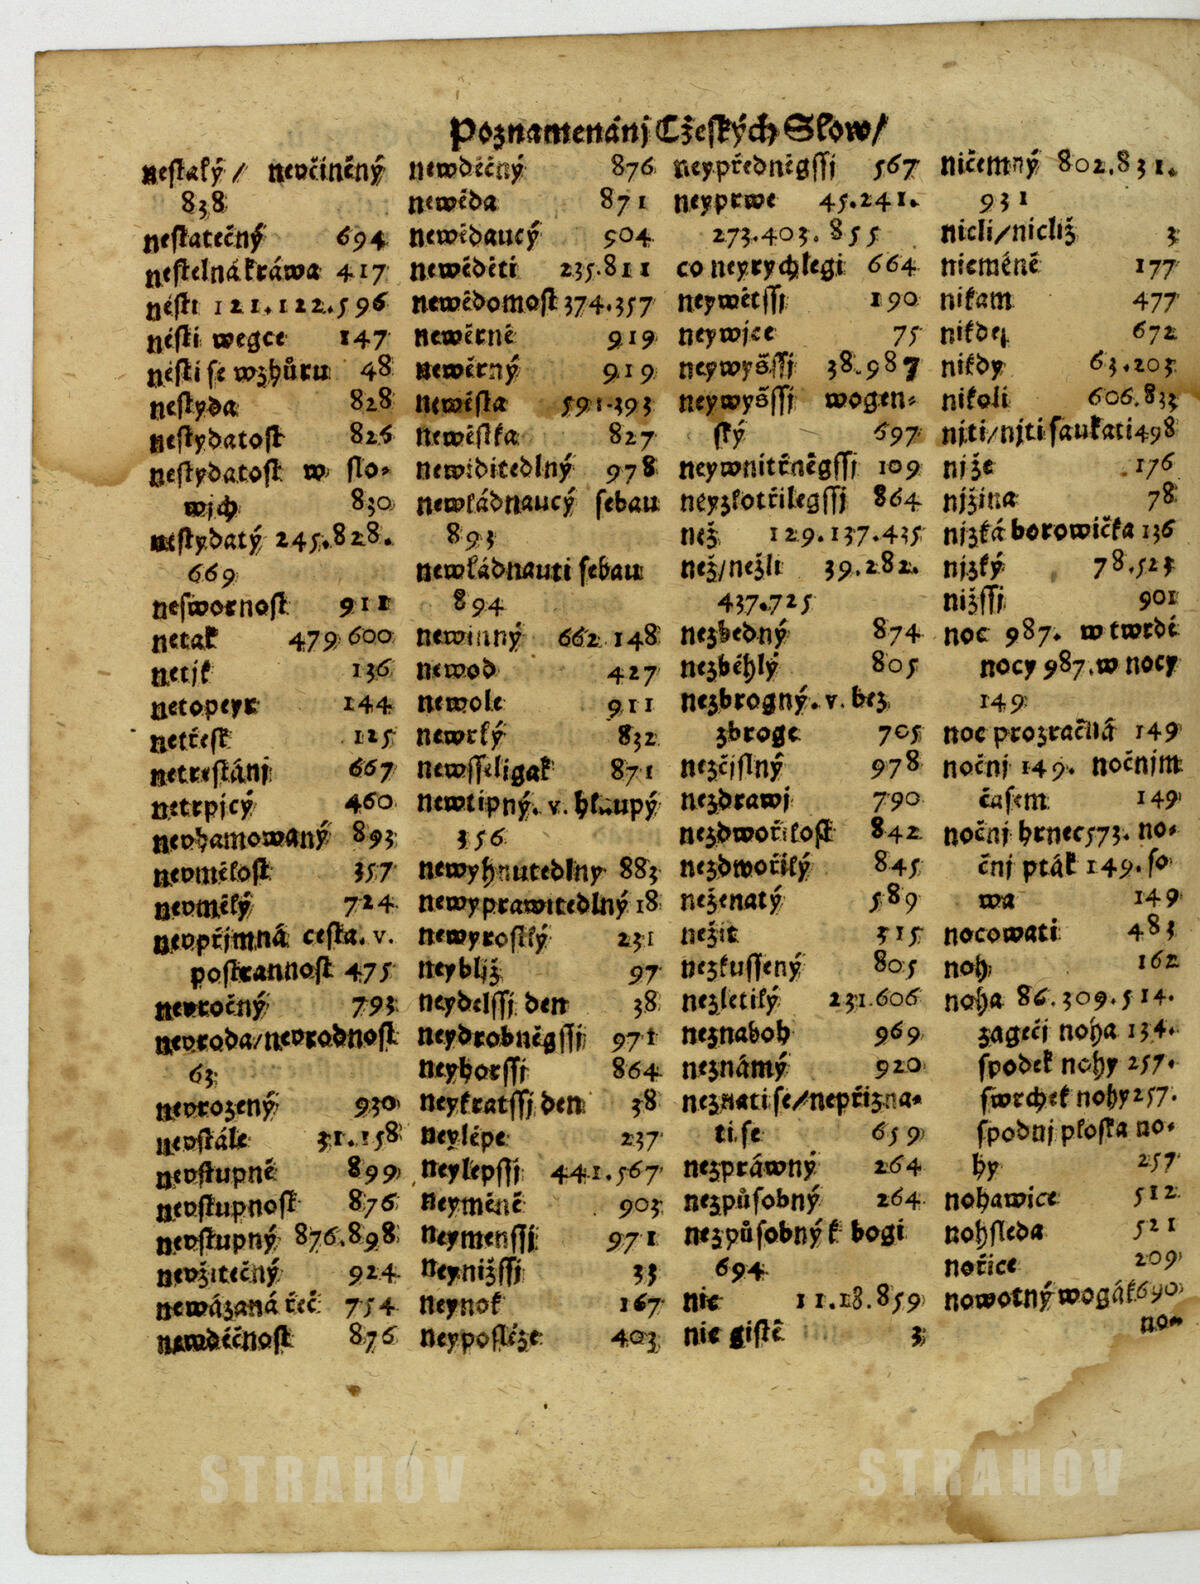 Poznamenánj Cžeſkých Slow/
neſtaſý/ nevčiněný
838
neſtatečný 694
neſtelná kráwa 417
néſti 121.122.596
néſti wegce 147
néſti se wzhůru 48
neſtyda 828
neſtydatoſt 826
neſtydatoſt w ſlo-
wjch 830
neſtydatý 245.828.
669
neſwornoſt 911
netak 479 600
netjk 136
netopeyr 144
netřeſk 125
netreſtánj 667
netrpjcý 460
nevhamowaný 893
nevměloſt 357
nevmělý 724
nevpřjmná ceſta. v.
poſtrannoſt 475
nevročný 793
nevroda/nevrodnoſt
63
nevrozený 930
nevſtále 31.158
nevſtupně 899
nevſtupnoſt 876
nevſtupný 876.898
nevžitečný 924
newázaná řeč 754
newděčnoſt 876
newděčný 876
newěda 871
newědaucý 904
newěděti 235.811
newědomoſt 374.357
newěrně 919
newěrný 919
newěſta 591.393
newěſtka 827
newiditedlný 978
newládnaucý ſebau
893
newládnauti ſebau
894
newinný 662 148
newod 427
newole 911
newrlý 832
newſſeligak 871
newtipný. v. hlaupý
356
newyhnutedlny 883
newyprawitedlný 18
newyroſtlý 231
neyblјž 97
neydelſſj den 38
neydrobněgſſj 971
neyhorſſj 864
neykratſſj den 38
neylépe 237
neylepſſj 441.567
neyméně 903
neymenſſj 971
neynižſſj 33
neynok 167
neypoſléze 403
neypředněgſſj 567
neyprwe 45.241.
273.403.855
co neyrychlegi 664
neywětſſj 190
neywjce 75
neywyšſſj 38.987
neywyšſſj wogen-
ſký 697
neywnitřněgſſj 109
neyzlotřilegſſj 864
než 129.137.435
než/nežli 39.282.
437.725
nezbedný 874
nezběhlý 805
nezbrogný. v. bez
zbroge 705
nezčjſlný 978
nezdrawj 790
nezdwořiloſt 842
nezdwořilý 845
neženatý 589
nežit 315
nezkuſſený 805
nezletilý 231.606
neznaboh 969
neznámý 920
neznati ſe/nepřizna-
ti ſe 659
nezpráwný 264
nezpůſobný 264
nezpůſobný k bogi
694
nic 11.18.859
nic giſtě 3
ničemný 802.831.
931
nicli/nicliž 3
nicméně 177
nikam 477
nikdej 672
nikdy 63.203
nikoli 606.833
njti/njti ſaukati 498
njže 176
njžina 78
njzká borowička 136
njzký 78.523
nižſſj 901
noc 987. w twrdé
nocy 987. w nocy
149
noc prozračňá 149
nočnj 149. nočnjm
časem 149
nočnj hrnec 573. no-
čnj pták 149. ſo
wa 149
nocowati 483
noh 162
noha 86.309.514.
zagečj noha 134.
ſpodek nohy 257.
ſwrchek nohy 257.
ſpodnj ploſka no-
hy 257
nohawice 512
nohſleda 521
nořice 209
nowotný wogák 690
no-
STRAHOV STRAHOV